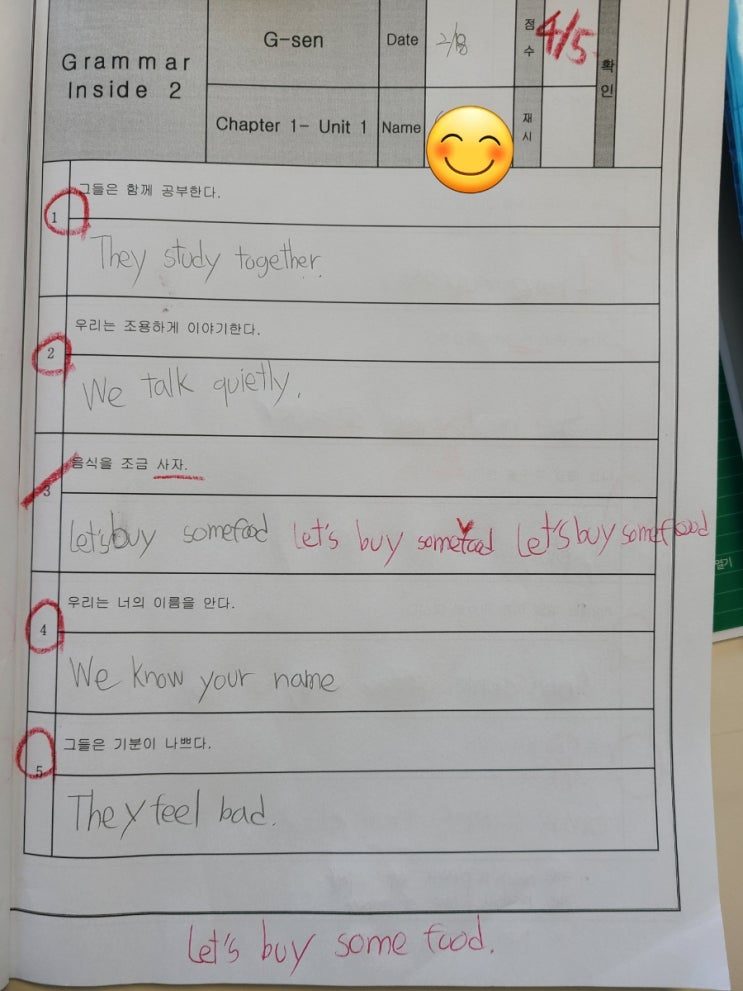 Grammar Inside 2
G-sen
Date
2/18
점수
4/5
확인
Chapter 1- Unit 1
Name
재시
1
그들은 함께 공부한다.
They study together.
2
우리는 조용하게 이야기한다.
We talk quietly.
3
음식을 조금 사자.
Let's buy somefood Let's buy somefood Let's buy somefood
4
우리는 너의 이름을 안다.
We know your name
5
그들은 기분이 나쁘다.
They feel bad.
Let's buy some food.